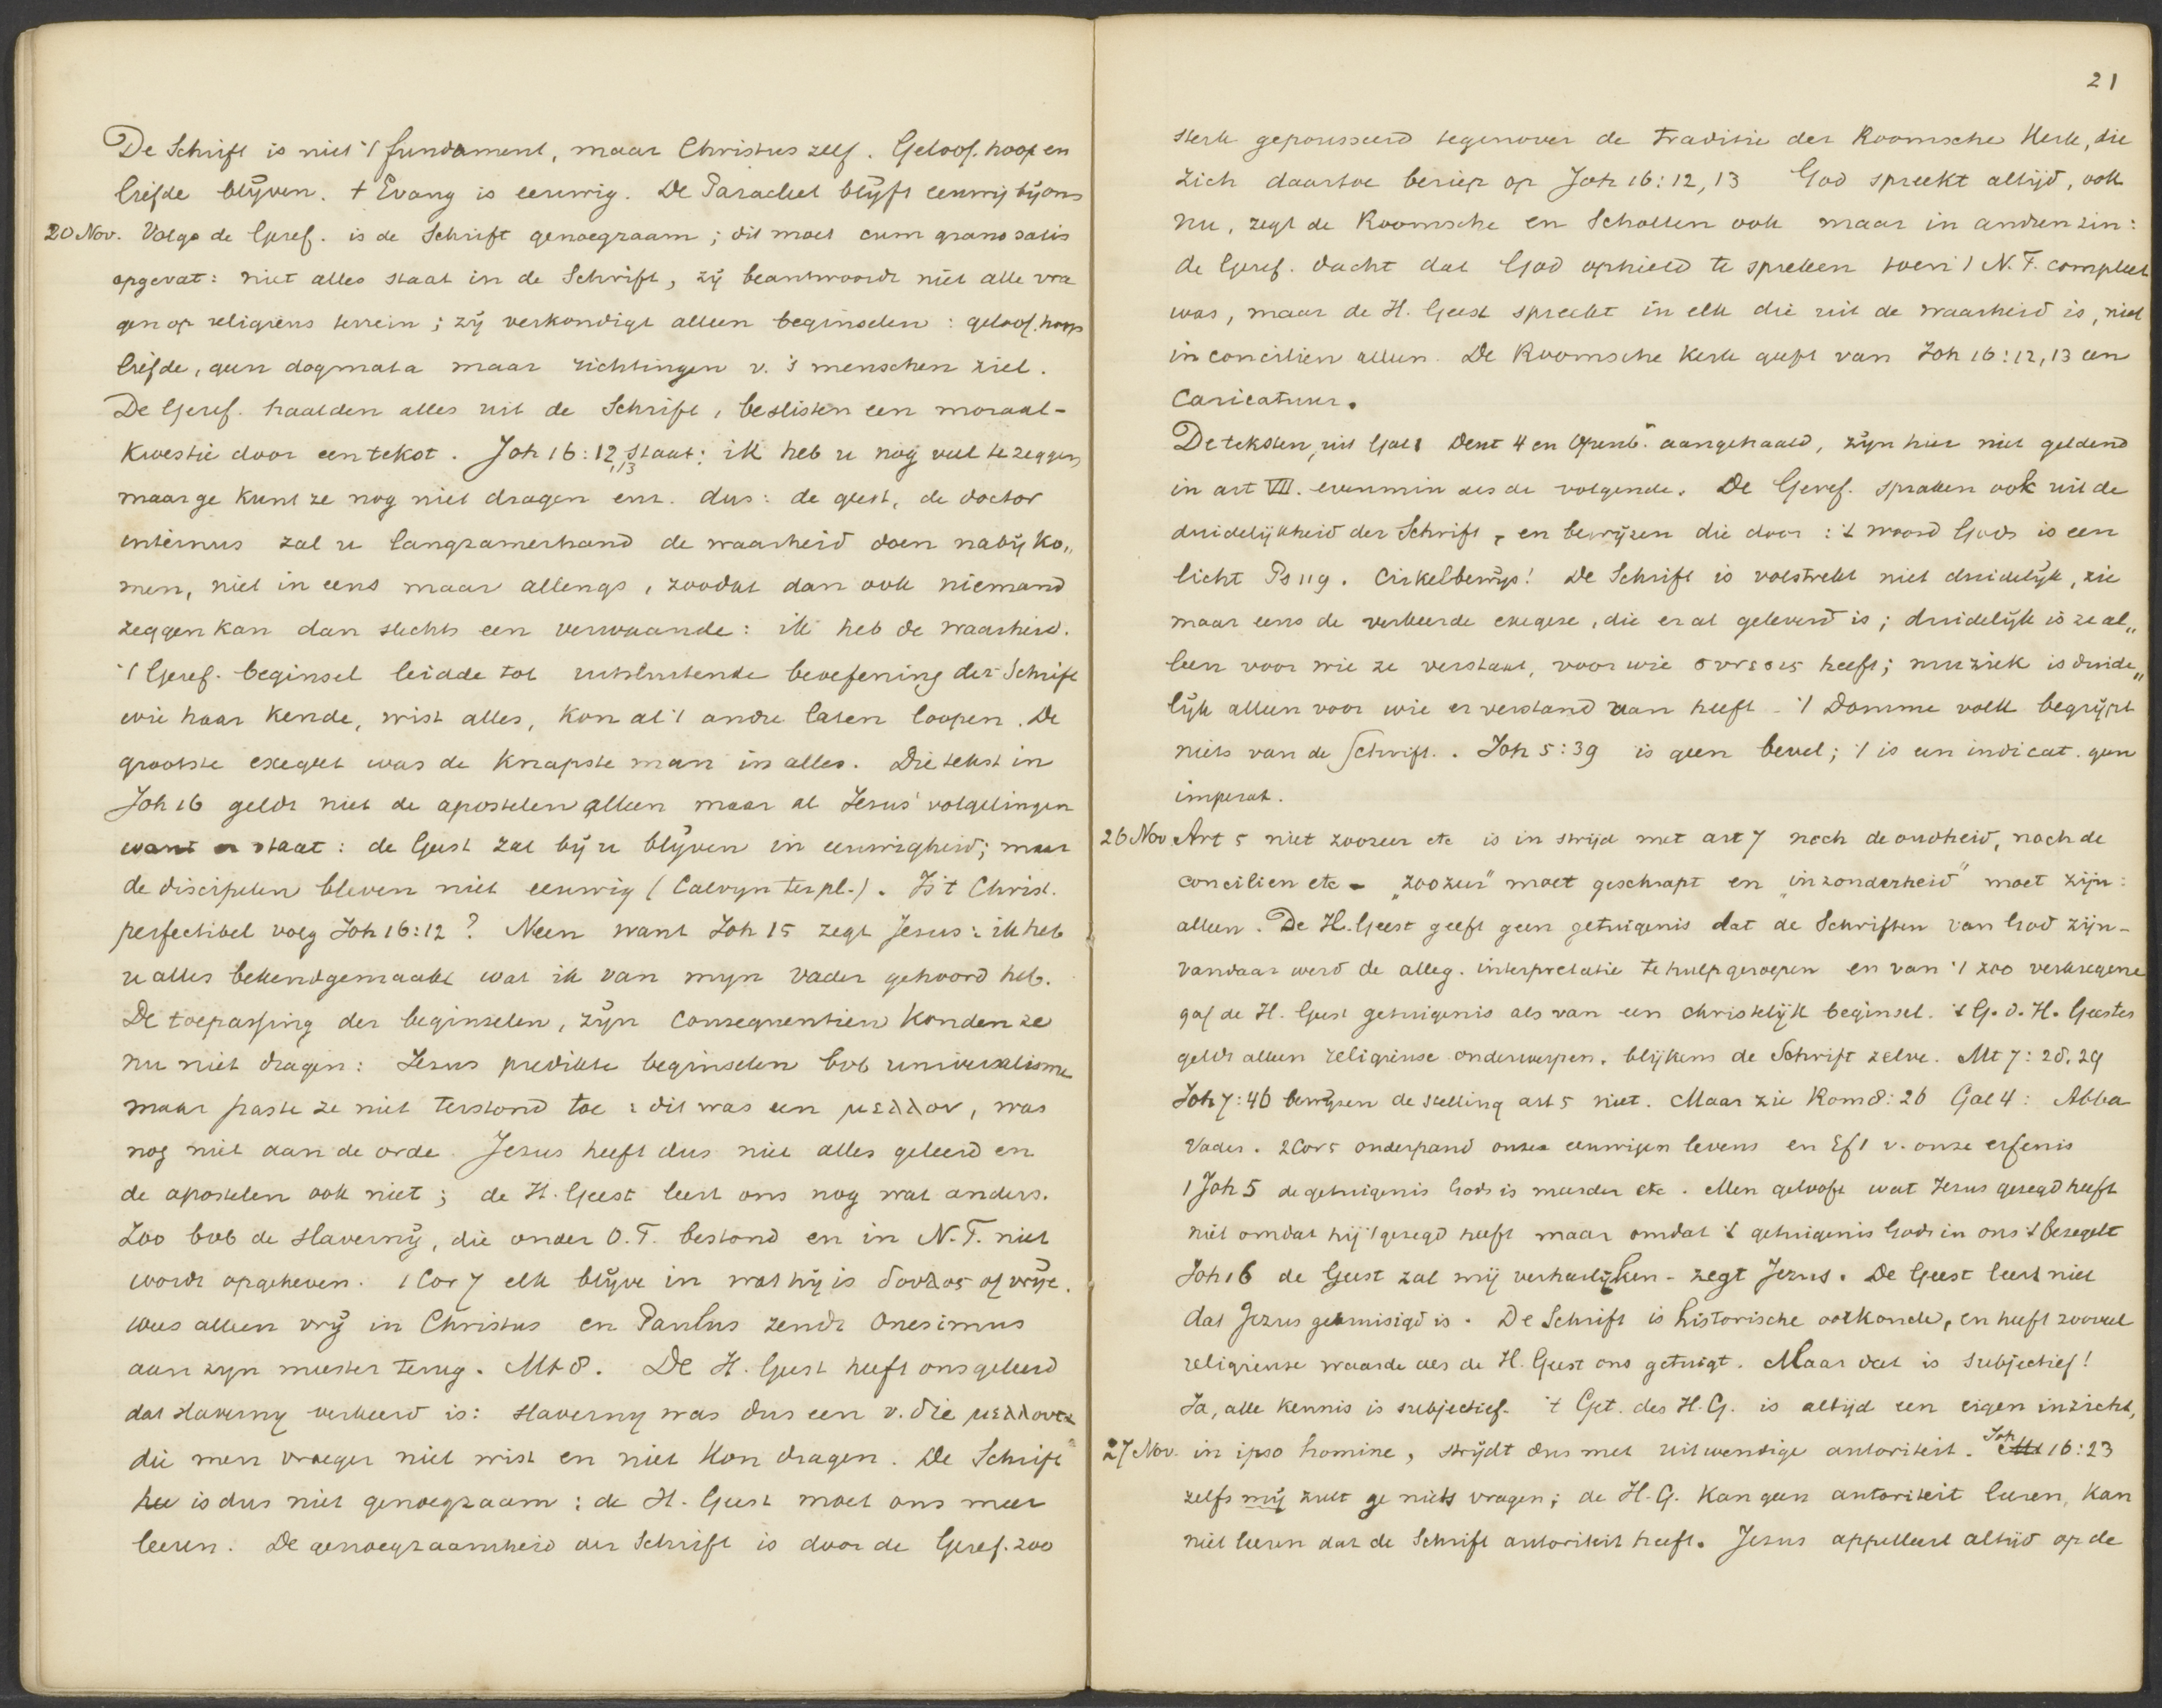 De Schrift is niet 't fundament, maar Christus zelf. Geloof, hoop en
liefde blijven. 't Evang is eeuwig. De Paracleet blijft eeuwig bij ons
20 Nov. Volgs de Geref. is de Schrift genoegzaam; dit moet cum grano salis
opgevat: niet alles staat in de Schrift, zij beantwoordt niet alle vra
gen op religieus terrein; zij verkondigt alleen beginselen: geloof, hoop
liefde, geen dogmata maar richtingen v. 's menschen ziel.
De Geref. haalden alles uit de Schrift, beslisten een moraal-
kwestie door een tekst. Joh 16:12,13 staat: ik heb u nog veel te zeggen
maar ge kunt ze nog niet dragen enz. dus: de geest, de doctor
internus zal u langzamerhand de waarheid doen nabij ko„
men, niet in eens maar allengs, zoodat dan ook niemand
zeggen kan dan slechts een verwaande: ik heb de waarheid.
't Geref. beginsel leidde tot uitsluitende beoefening der Schrift
wie haar kende, wist alles, kon al 't andre laten loopen. De
grootste exegeet was de knapste man in alles. Die tekst in
Joh 16 geldt niet de apostelen alleen maar al Jesus' volgelingen
want er staat: de Geest zal bij u blijven in eeuwigheid; maar
de discipelen bleven niet eeuwig (Calvyn ter pl.). Is 't Christ.
perfectibel volg Joh 16:12? Neen want Joh 15 zegt Jesus: ik heb
u alles bekendgemaakt wat ik van mijn Vader gehoord heb.
De toepassing der beginselen, zijn consequentien konden ze
nu niet dragen: Jesus predikte beginselen bvb universalisme
maar paste ze niet terstond toe: dit was een μελλον, was
nog niet aan de orde. Jesus heeft dus niet alles geleerd en
de apostelen ook niet; de H. Geest leert ons nog wat anders.
Zoo bvb de slavernij, die onder O.T. bestond en in N.T. niet
wordt opgeheven. 1 Cor 7 elk blijve in wat hij is δουλος of vrije.
wees alleen vrij in Christus en Paulus zendt Onesimus
aan zijn meester terug. Mt 8. De H. Geest heeft ons geleerd
dat slavernij verkeerd is: slavernij was dus een v. die μελλοντα
die men vroeger niet wist en niet kon dragen. De Schrift
is dus niet genoegzaam: de H. Geest moet ons meer
leeren. De genoegzaamheid der Schrift is door de Geref. zoo
21
sterk gepousseerd tegenover de traditie der Roomsche Kerk, die
zich daartoe beriep op Joh 16:12,13 God spreekt altijd, ook
nu, zegt de Roomsche en Scholten ook maar in andren zin:
de Geref. dacht dat God ophield te spreken toen 't N.T. compleet
was, maar de H. Geest spreekt in elk die uit de waarheid is, niet
in concilien alleen. De Roomsche Kerk geeft van Joh 16:12,13 een
Caricatuur.
De teksten, uit Gal 1 Deut 4 en Openb. aangehaald, zijn hier niet geldend
in art VII. evenmin als de volgende. De Geref. spraken ook uit de
duidelijkheid der Schrift, en bewijzen die door: 't woord Gods is een
licht Ps 119. Cirkelbewijs! De Schrift is volstrekt niet duidelijk, zie
maar eens de verkeerde exegese, die er al geleverd is; duidelijk is ze al„
leen voor wie ze verstaat, voor wie συνεσις heeft; muziek is duide„
lijk alleen voor wie er verstand van heeft - 't Domme volk begrijpt
niets van de Schrift. Joh 5:39 is geen bevel; 't is een indicat. geen
imperat.
26 Nov Art 5 niet zoozeer etc is in strijd met art 7 noch de oudheid, noch de
concilien etc - „zoozeer" moet geschrapt en „inzonderheid" moet zijn:
alleen. De H. Geest geeft geen getuigenis dat de Schriften van God zijn -
vandaar werd de alleg. interpretatie te hulp geroepen en van 't zoo verkregene
gaf de H. Geest getuigenis als van een christelijk beginsel. 't G. d. H. Geestes
geldt alleen religieuse onderwerpen, blijkens de Schrift zelve. Mt 7:28,29
Joh 7:46 bewijzen de stelling art 5 niet. Maar zie Rom 8:26 Gal 4: Abba
Vader. 2 Cor 5 onderpand onzes eeuwigen levens en Ef 1 v. onze erfenis
1 Joh 5 de getuigenis Gods is meerder etc. Men gelooft wat Jesus gezegd heeft
niet omdat hij 't gezegd heeft maar omdat 't getuigenis Gods in ons 't bezegelt
Joh 16 de Geest zal mij verheerlijken - zegt Jezus. De Geest leert niet
dat Jezus gekruisigd is. De Schrift is historische oorkonde, en heeft zooveel
religieuse waarde als de H. Geest ons getuigt. Maar dat is subjectief!
Ja, alle kennis is subjectief. 't Get. des H.G. is altijd een eigen inzicht,
27 Nov. in ipso homine, strijdt dus met uitwendige autoriteit. Joh 16:23
zelfs mij zult ge niets vragen; de H.G. kan geen autoriteit leeren, kan
niet leeren dat de Schrift autoriteit heeft. Jesus appelleert altijd op de